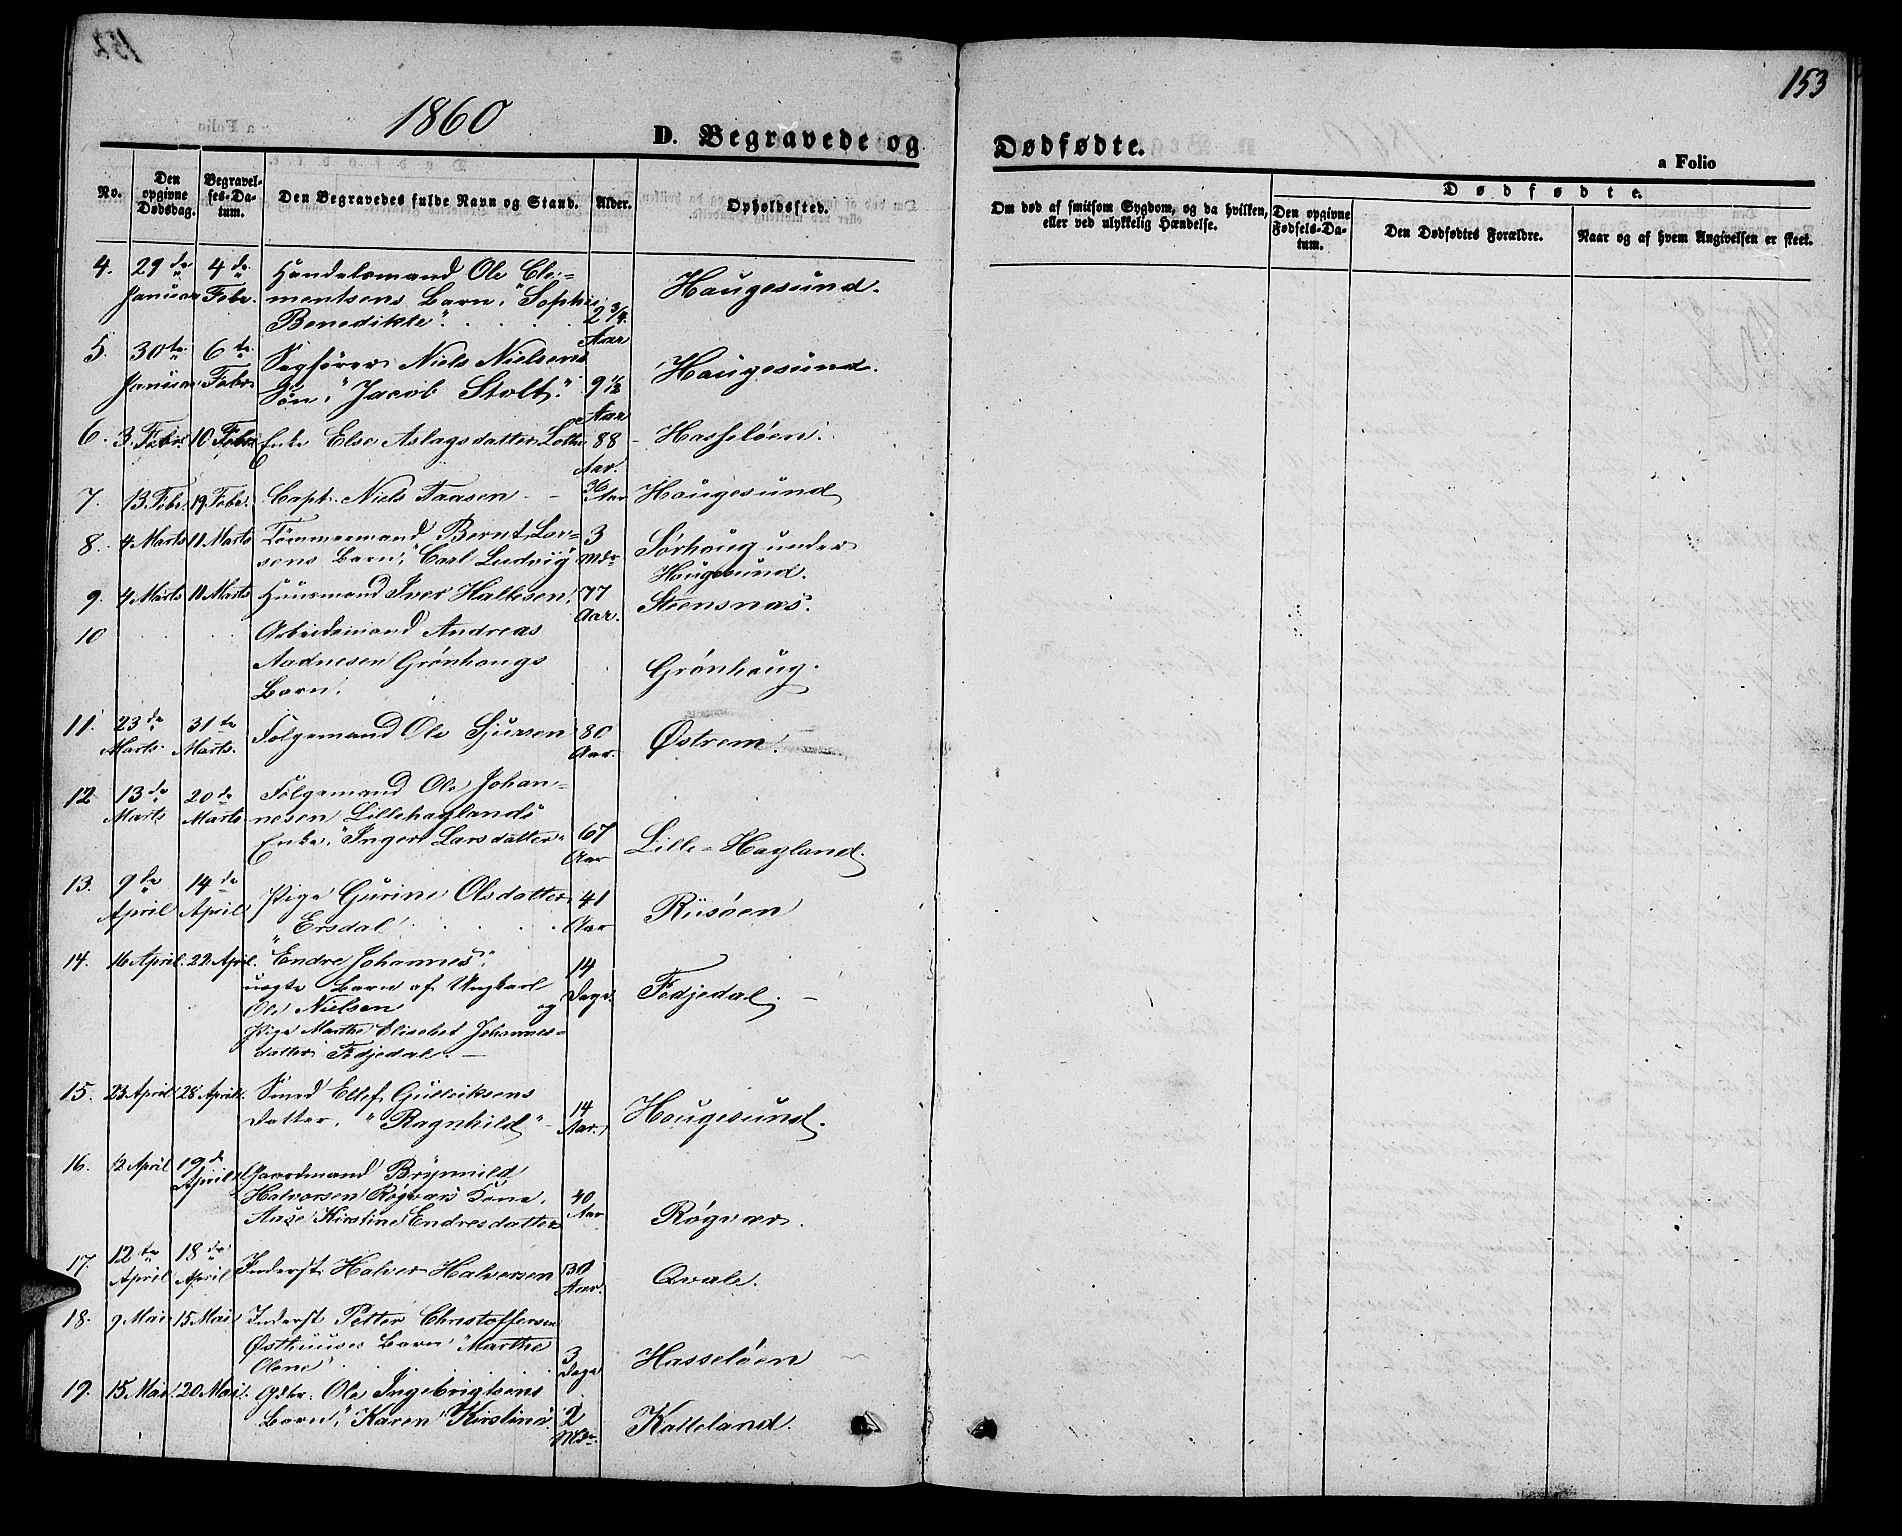 153
1860
D. Begravede og Dødfødte.
a Folio
No.
Den opgivne Dødsdag.
Begravelses-Datum.
Den Begravedes fulde Navn og Stand.
Alder.
Opholdssted.
Om død af smitsom Sygdom, og da hvilken, eller ved ulykkelig Hændelse.
Dødfødte.
Den opgivne Fødsels-Datum.
Den Dødfødtes Forældre.
Naar og af hvem Angivelsen er skeet.
4. 29de Januar 4de Febr. Handelsmand Ole Cle-
mentsens Barn, "Sophie
Benedikte" 2 3/4 Aar Haugesund.
5. 30te Januar 6te Febr. Sagfører Niels Nielsens
Søn, "Jacob Stolt." 9 1/2 Aar Haugesund.
6. 3. Febr. 10 Febr. Enke Else Aslagsdatter 88 Aar. Hasseløen.
7. 13. Febr. 19 Febr. Capt. Niels Taasen 36 Aar Haugesund
8. 4 Marts 11 Marts Tømmermand Bernt Lar-
sens Barn, "Carl Ludvig" 3 Mdr Sørhaug under
Haugesund.
9. 4 Marts 11 Marts Huusmand Iver Hallesen. 77 Aar. Steensnæs.
10 Arbeidsmand Andreas
Aadnesen Grønhaugs
Barn. Grønhaug.
11. 23de Marts. 31te Marts. Følgemand Ole Sjursen 80 Aar. Østrem.
12. 13de Marts 20de Marts Følgemand Ole Johan-
nesen Lillehaglands
Enke, "Inger Larsdatter" 67 Aar Lille-Hagland.
13. 9de April 14de April Pige Gurine Olsdatter
Ersdal 41 Aar Rüsøen
14. 16 April. 22 April. "Endre Johannes",
uægte Barn af Ungkarl
Ole Nielsen og
Pige Marthe Elisabet Johannes-
datter Fedjedal. 14 Dage. Fedjedal.
15. 23 April 28 April. Smed Ellef Gulleiksens
Datter, "Ragnhild" 14 Aar. Haugesund.
16. 12 April 19de April Gaardmand Brynnild
Halvorsen Røgvær's Kone,
Aase Kirstine Endresdatter 40 Aar Røgvær.
17. 12te April 18de April Inderst Halvor Halvorsen 30 Aar. Qvale.
18. 9 Mai 15 Mai Inderst Petter Christoffersen
Østhuuses Barn "Marthe
Olene" 3 Dage Hasseløen
19. 15 Mai. 20 Mai. Gdbr. Ole Ingebrigtsens
Barn, "Karen Kirstine". 2 Mdr. Kalleland.